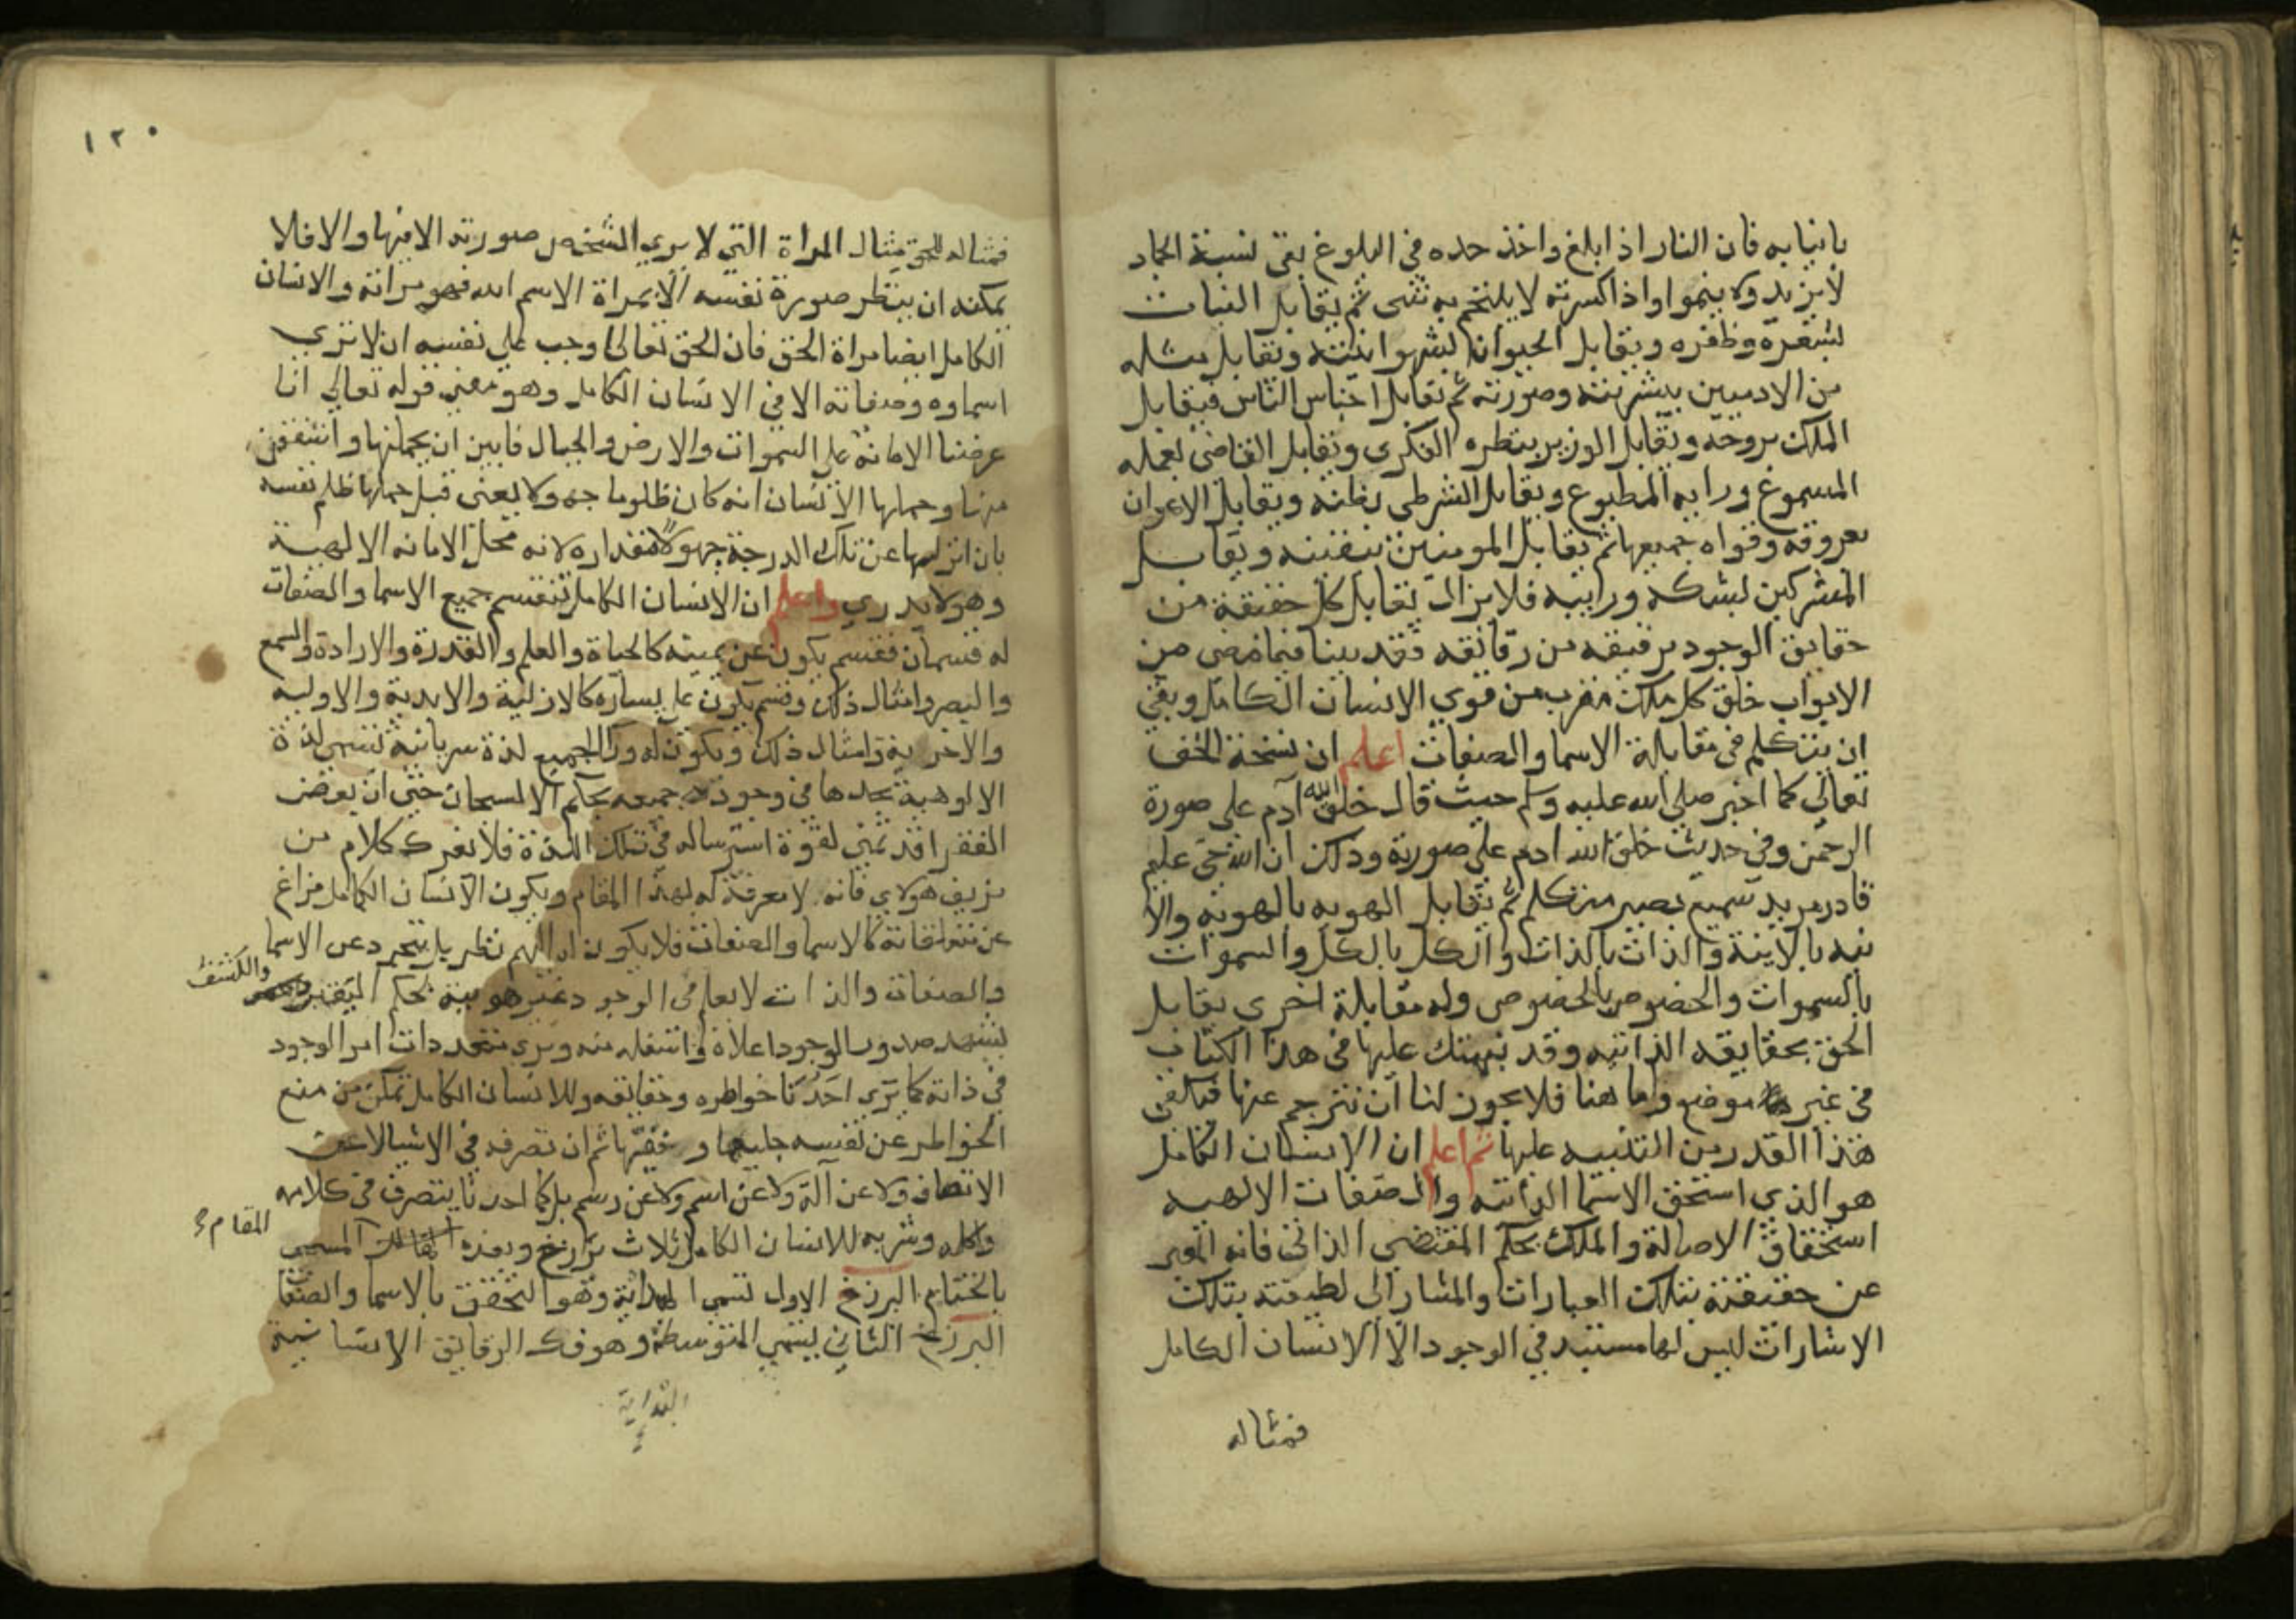 بانيابه فان النار اذا بلغ واخذ حده في البلوغ بقى نسبة الجماد
لا يزيد ولا ينموا واذا كسرته لا يلتحم به شى ثم يقابل النبات
بشعره وظفره ويقابل الحيوان بشهوانيته ويقابل مثله
من الادميين ببشريته وصورته ثم يقابل اجناس الناس فيقابل
الملك بروحه ويقابل الوزير بنظره الفكرى ويقابل القاضى بعلمه
المسموع ورايه المطبوع ويقابل الشرطى بظنه ويقابل الاعوان
بعروقه وقواه جميعها ثم يقابل المومنين بيقينه ويقابل
المشركين بشكه وريبه فلا يزال يقابل كل حقيقة من
حقايق الوجود برقيقه من رقائقه فقد بينا فيما مضى من
الابواب خلق كل ملك مقرب من قوي الانسان الكامل وبقي
ان يتكلم في مقابلة الاسما والصفات اعلم ان نسخة الحق
تعالى كما اخبر صلى الله عليه وسلم حيث قال خلق الله آدم على صورة
الرحمن وفي حديث خلق الله ادم على صورته وذلك ان الله حي عليم
قادر مريد سميع بصير متكلم ثم يقابل الهويه بالهويه والا
نيه بالانية والذات بالذات والكل بالكل والسموات
بالسموات والخصوص بالخصوص وله مقابلة اخرى يقابل
الحق بحقايقه الذاتيه وقد نبهتك عليها في هذا الكتاب
في غير موضع واما هنا فلا يجوز لنا ان نترجم عنها فيكفى
هذا القدر من التنبيه عليها ثم اعلم ان الانسان الكامل
هو الذي استحق الاسما الذاتيه والصفات الالهيه
استحقاق الاصالة والملك بحكم المقتضي الذاتى فانه المعبر
عن حقيقته بتلك العبارات والمشار الى لطيفته بتلك
الاشارات ليس لها مستند في الوجود الا الانسان الكامل
فمثاله
١٢٠
فمثاله للحق مثال المراة التي لا يري الشخص صورته الا فيها والا فلا
يمكنه ان ينظر صورة نفسه الا بمراة الاسم الله فهو مراته والانسان
الكامل ايضا مراة الحق فان الحق تعالى اوجب على نفسه ان لا تري
اسماوه وصفاته الا في الانسان الكامل وهو معنى قوله تعالي انا
عرضنا الامانه على السموات والارض والجبال فابين ان يحملنها واشفقن
منها وحملها الانسان انه كان ظلوما جهولا يعنى قبل حملها ظلم نفسه
بان انزلها عن تلك الدرجة جهولا بمقداره لانه محل الامانه الالهية
وهو لا يدري واعلم ان الانسان الكامل تنقسم جميع الاسما والصفات
له قسمان فقسم يكون عن يمينه كالحياة والعلم والقدرة والارادة والسمع
والبصر وامثال ذلك وقسم يكون على يساره كالازلية والابدية والاوليه
والاخرية وامثال ذلك ويكون له ورا الجميع لذة سريانية تسمى لذة
الالوهية يجدها في وجوده جميعه بحكم الانسحاب حتى ان بعض
الفقرا قد تمنى لقوة استرساله في تلك اللذة فلا يغرك كلام من
يزيف هولاي فانه لا معرفة له بهذا المقام ويكون الانسان الكامل فراغ
عن متعلقاته كالاسما والصفات فلا يكون له اليهم نظر بل يتجرد عن الاسما
والصفات والذات لا يعلم في الوجود غير هويته بحكم اليقين والكشف
يشهد صدور الوجود اعلاه واسفله منه ويرى متعددات امر الوجود
في ذاته كما يري احدنا خواطره وحقايقه وللانسان الكامل تمكن من منع
الخواطر عن نفسه جليها و حقيرها ثم ان تصرفه في الاشيا لا عن
الاتصاف ولا عن آلة ولا عن اسم ولا عن رسم بل كما احدنا يتصرف في كلامه
واكله وشربه للانسان الكامل ثلاث برازخ وبعده المقام المسمى
بالختام البرزخ الاول تسمى البداية وهو التحقق بالاسما والصفات
البرزخ الثاني يسمي المتوسطة وهو فك الرقايق الانسانية